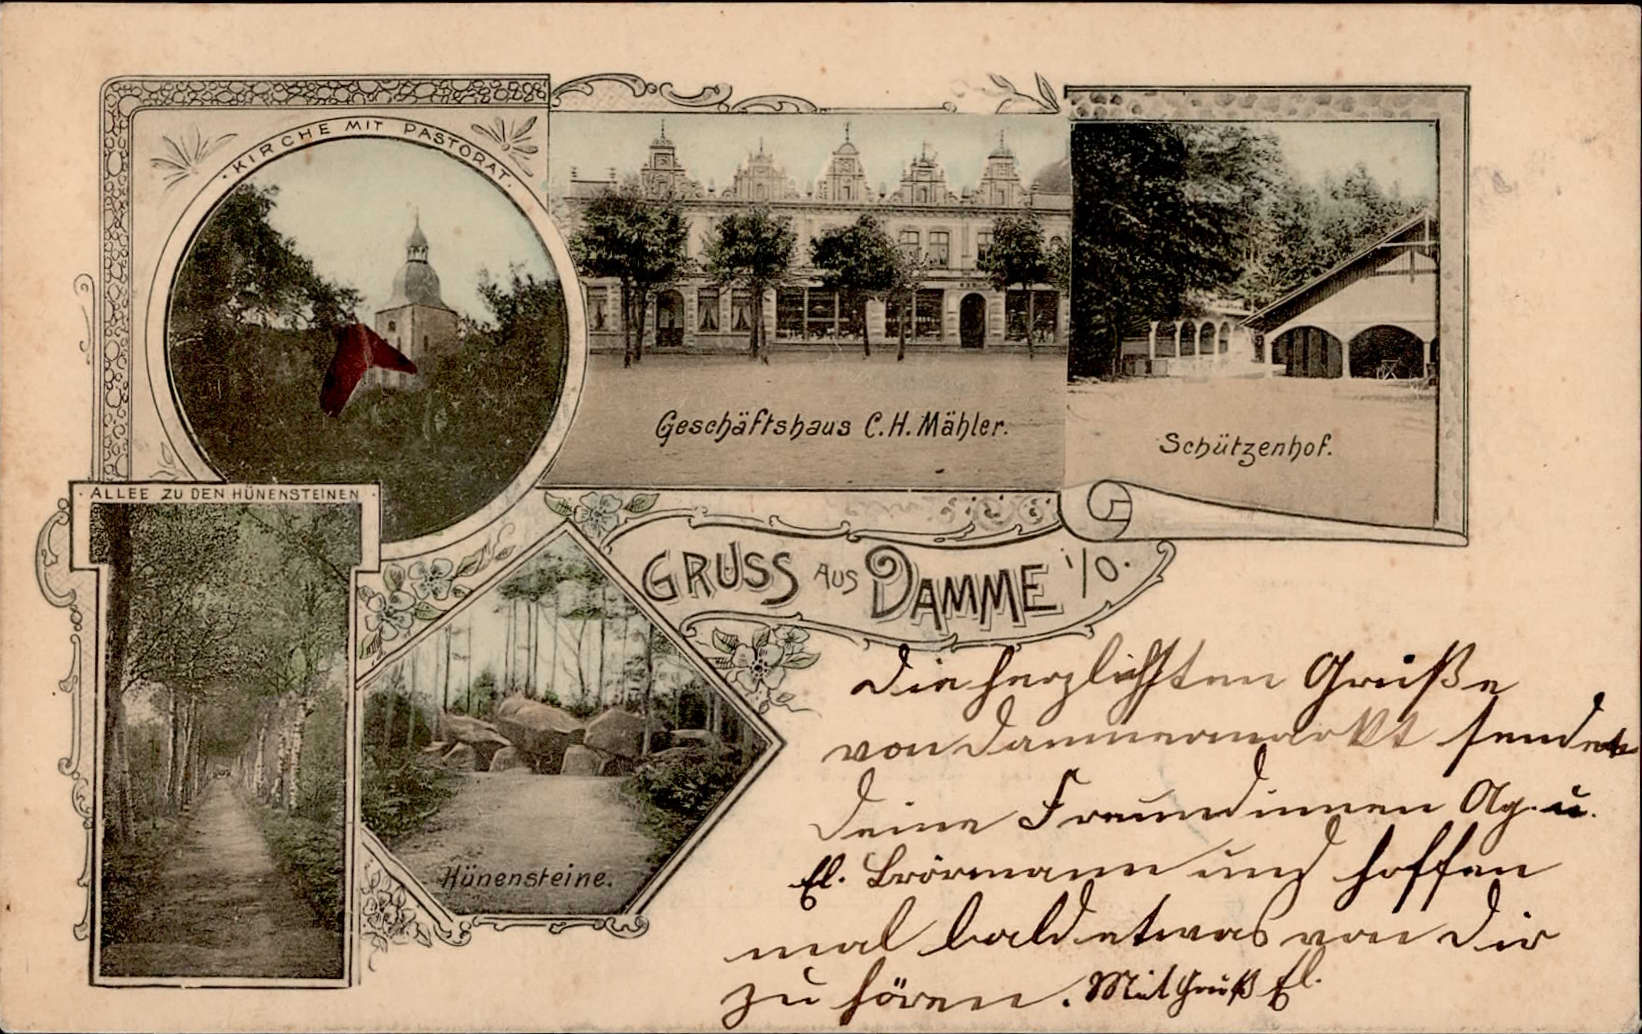 · KIRCHE MIT PASTORAT ·
Geschäftshaus C.H. Mähler.
Schützenhof.
· ALLEE ZU DEN HÜNENSTEINEN ·
GRUSS AUS DAMME i/O.
Hünensteine.
Die herzlichsten Grüße
von Dammermarkt senden
Deine Freundinnen Ag. u.
El. Brörmann und hoffen
mal bald etwas von Dir
zu hören. Mit Gruß El.